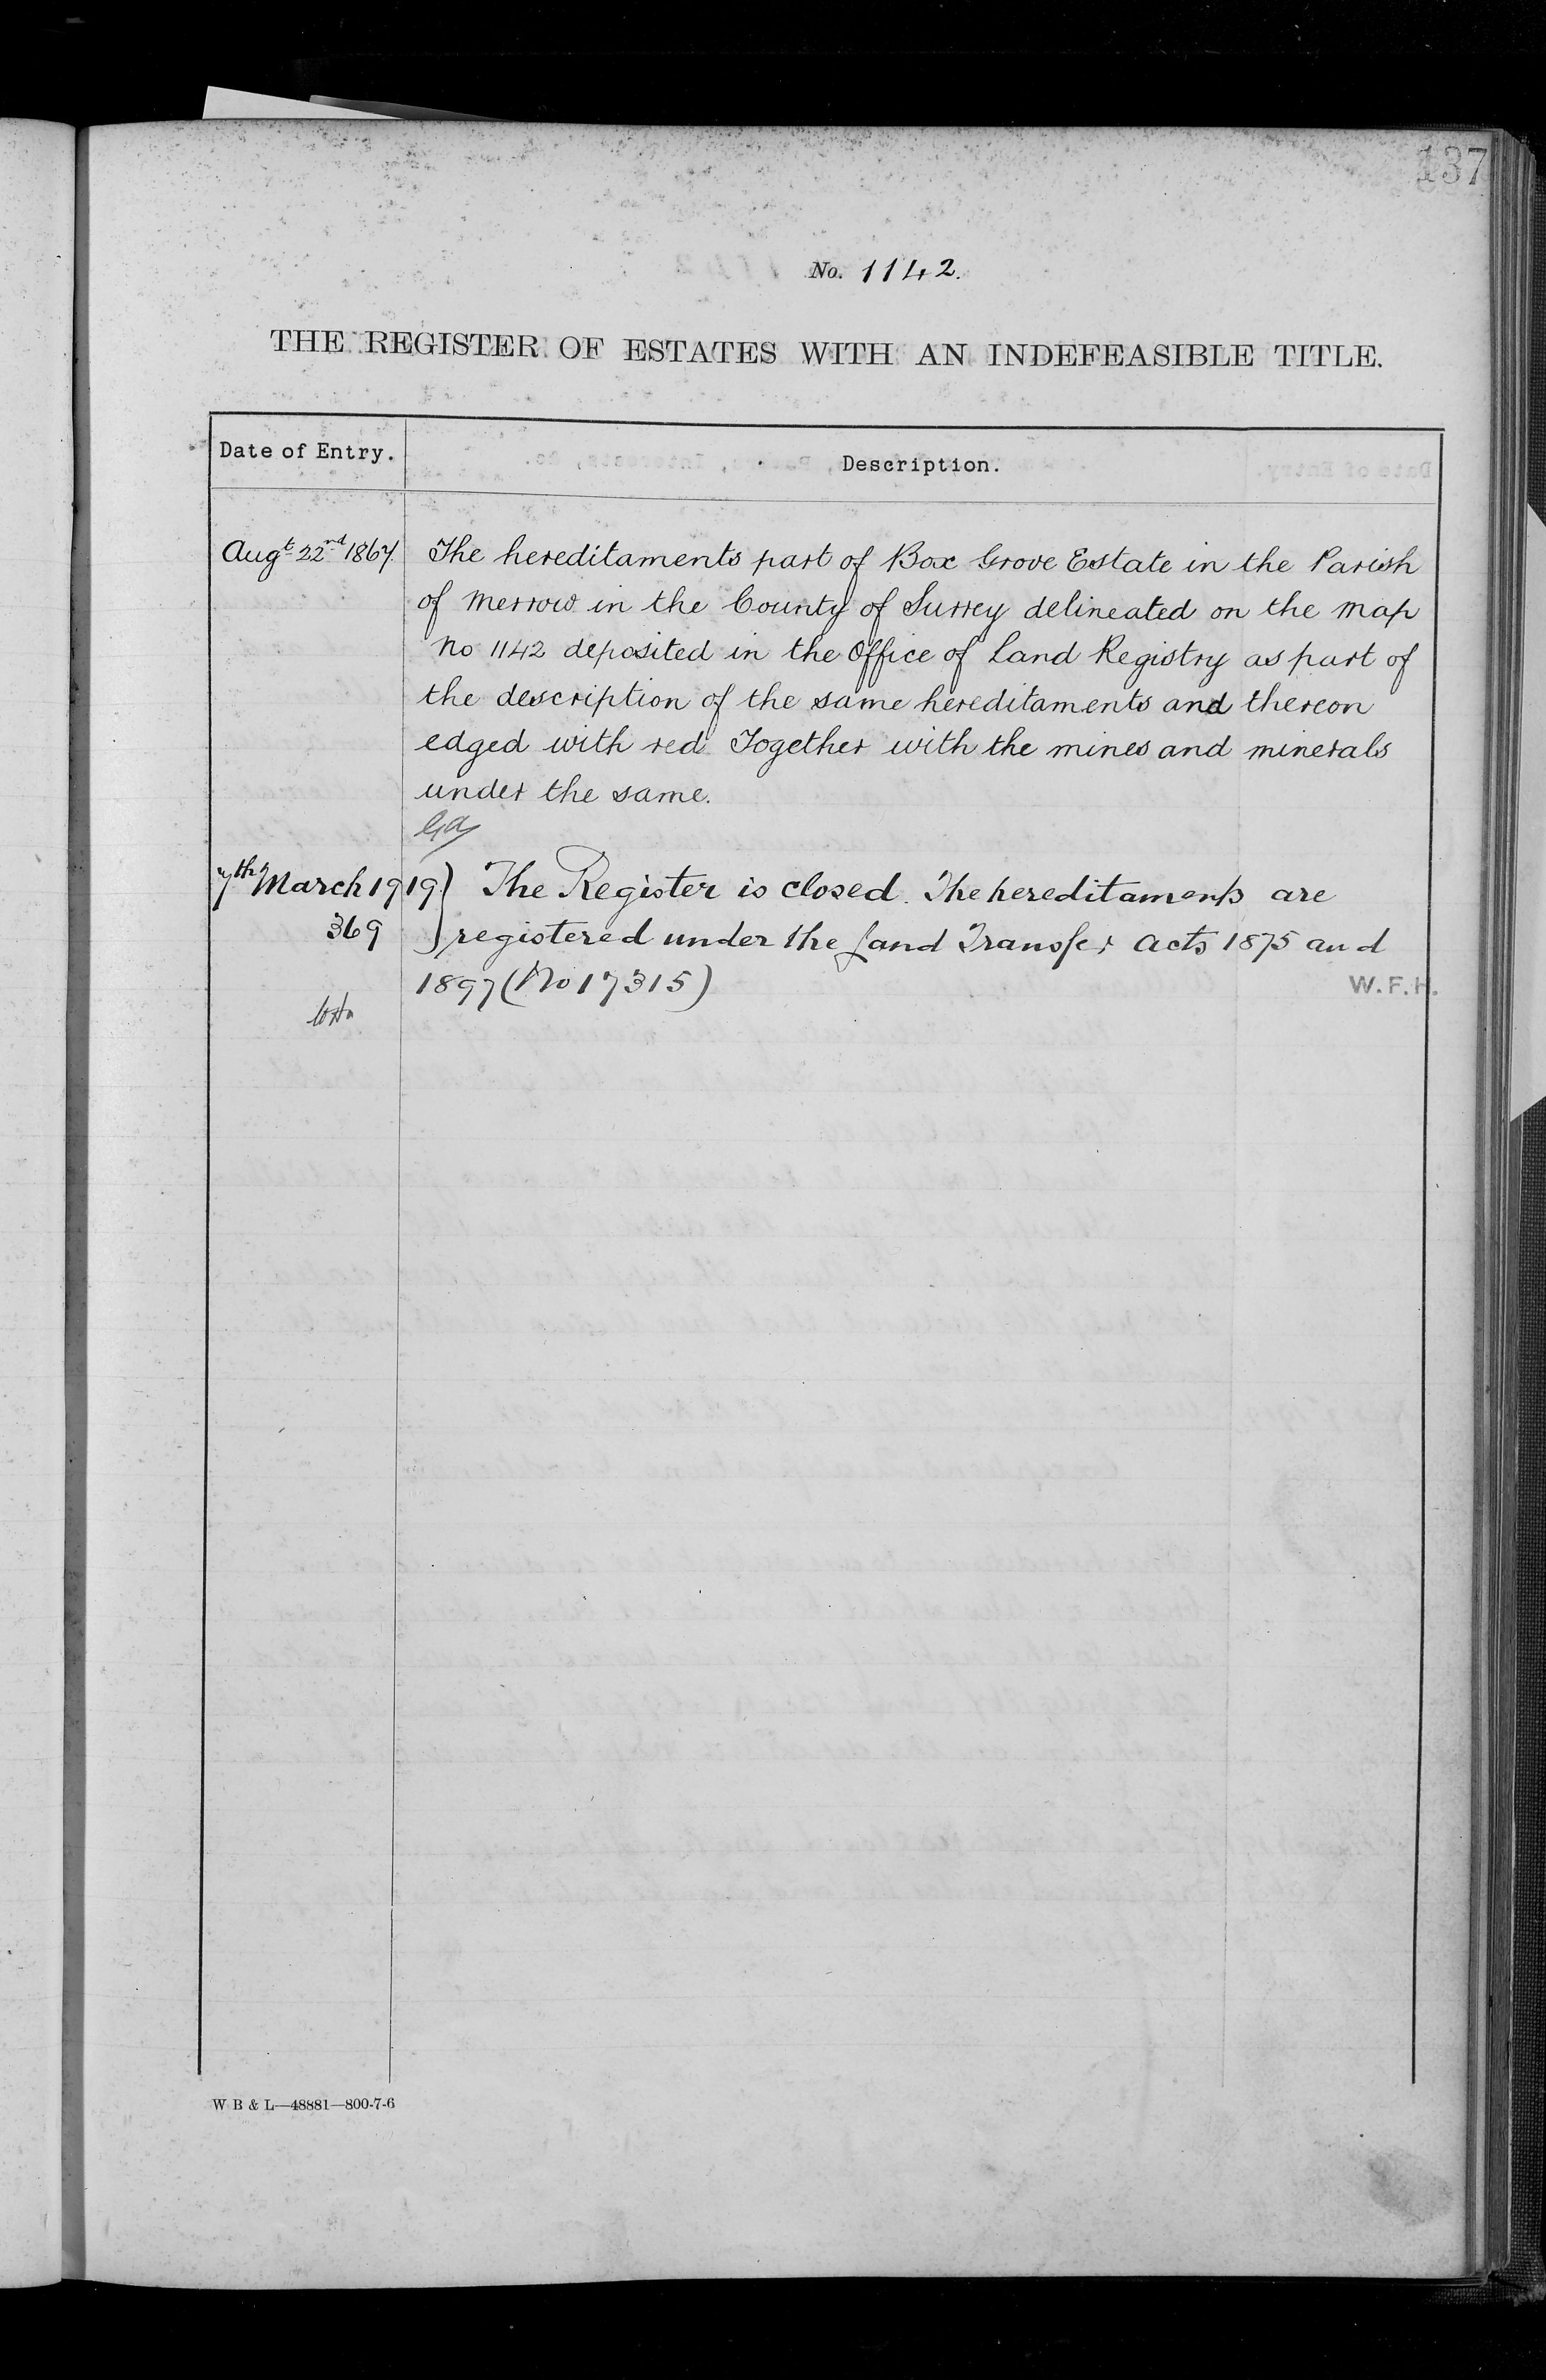 137
No. 1142.
THE REGISTER OF ESTATES WITH AN INDEFEASIBLE TITLE.
Date of Entry. Description.
Augt 22nd 1867. The hereditaments part of Box Grove Estate in the Parish
of Merrow in the County of Surrey delineated on the map
No 1142 deposited in the Office of Land Registry as part of
the description of the same hereditaments and thereon
edged with red Together with the mines and minerals
under the same.
7th March 1919) The Register is closed. The hereditaments are
369 ) registered under the Land Transfer Acts 1875 and
1897 (No 17315) W.F.H.
W B & L—48881—800-7-6